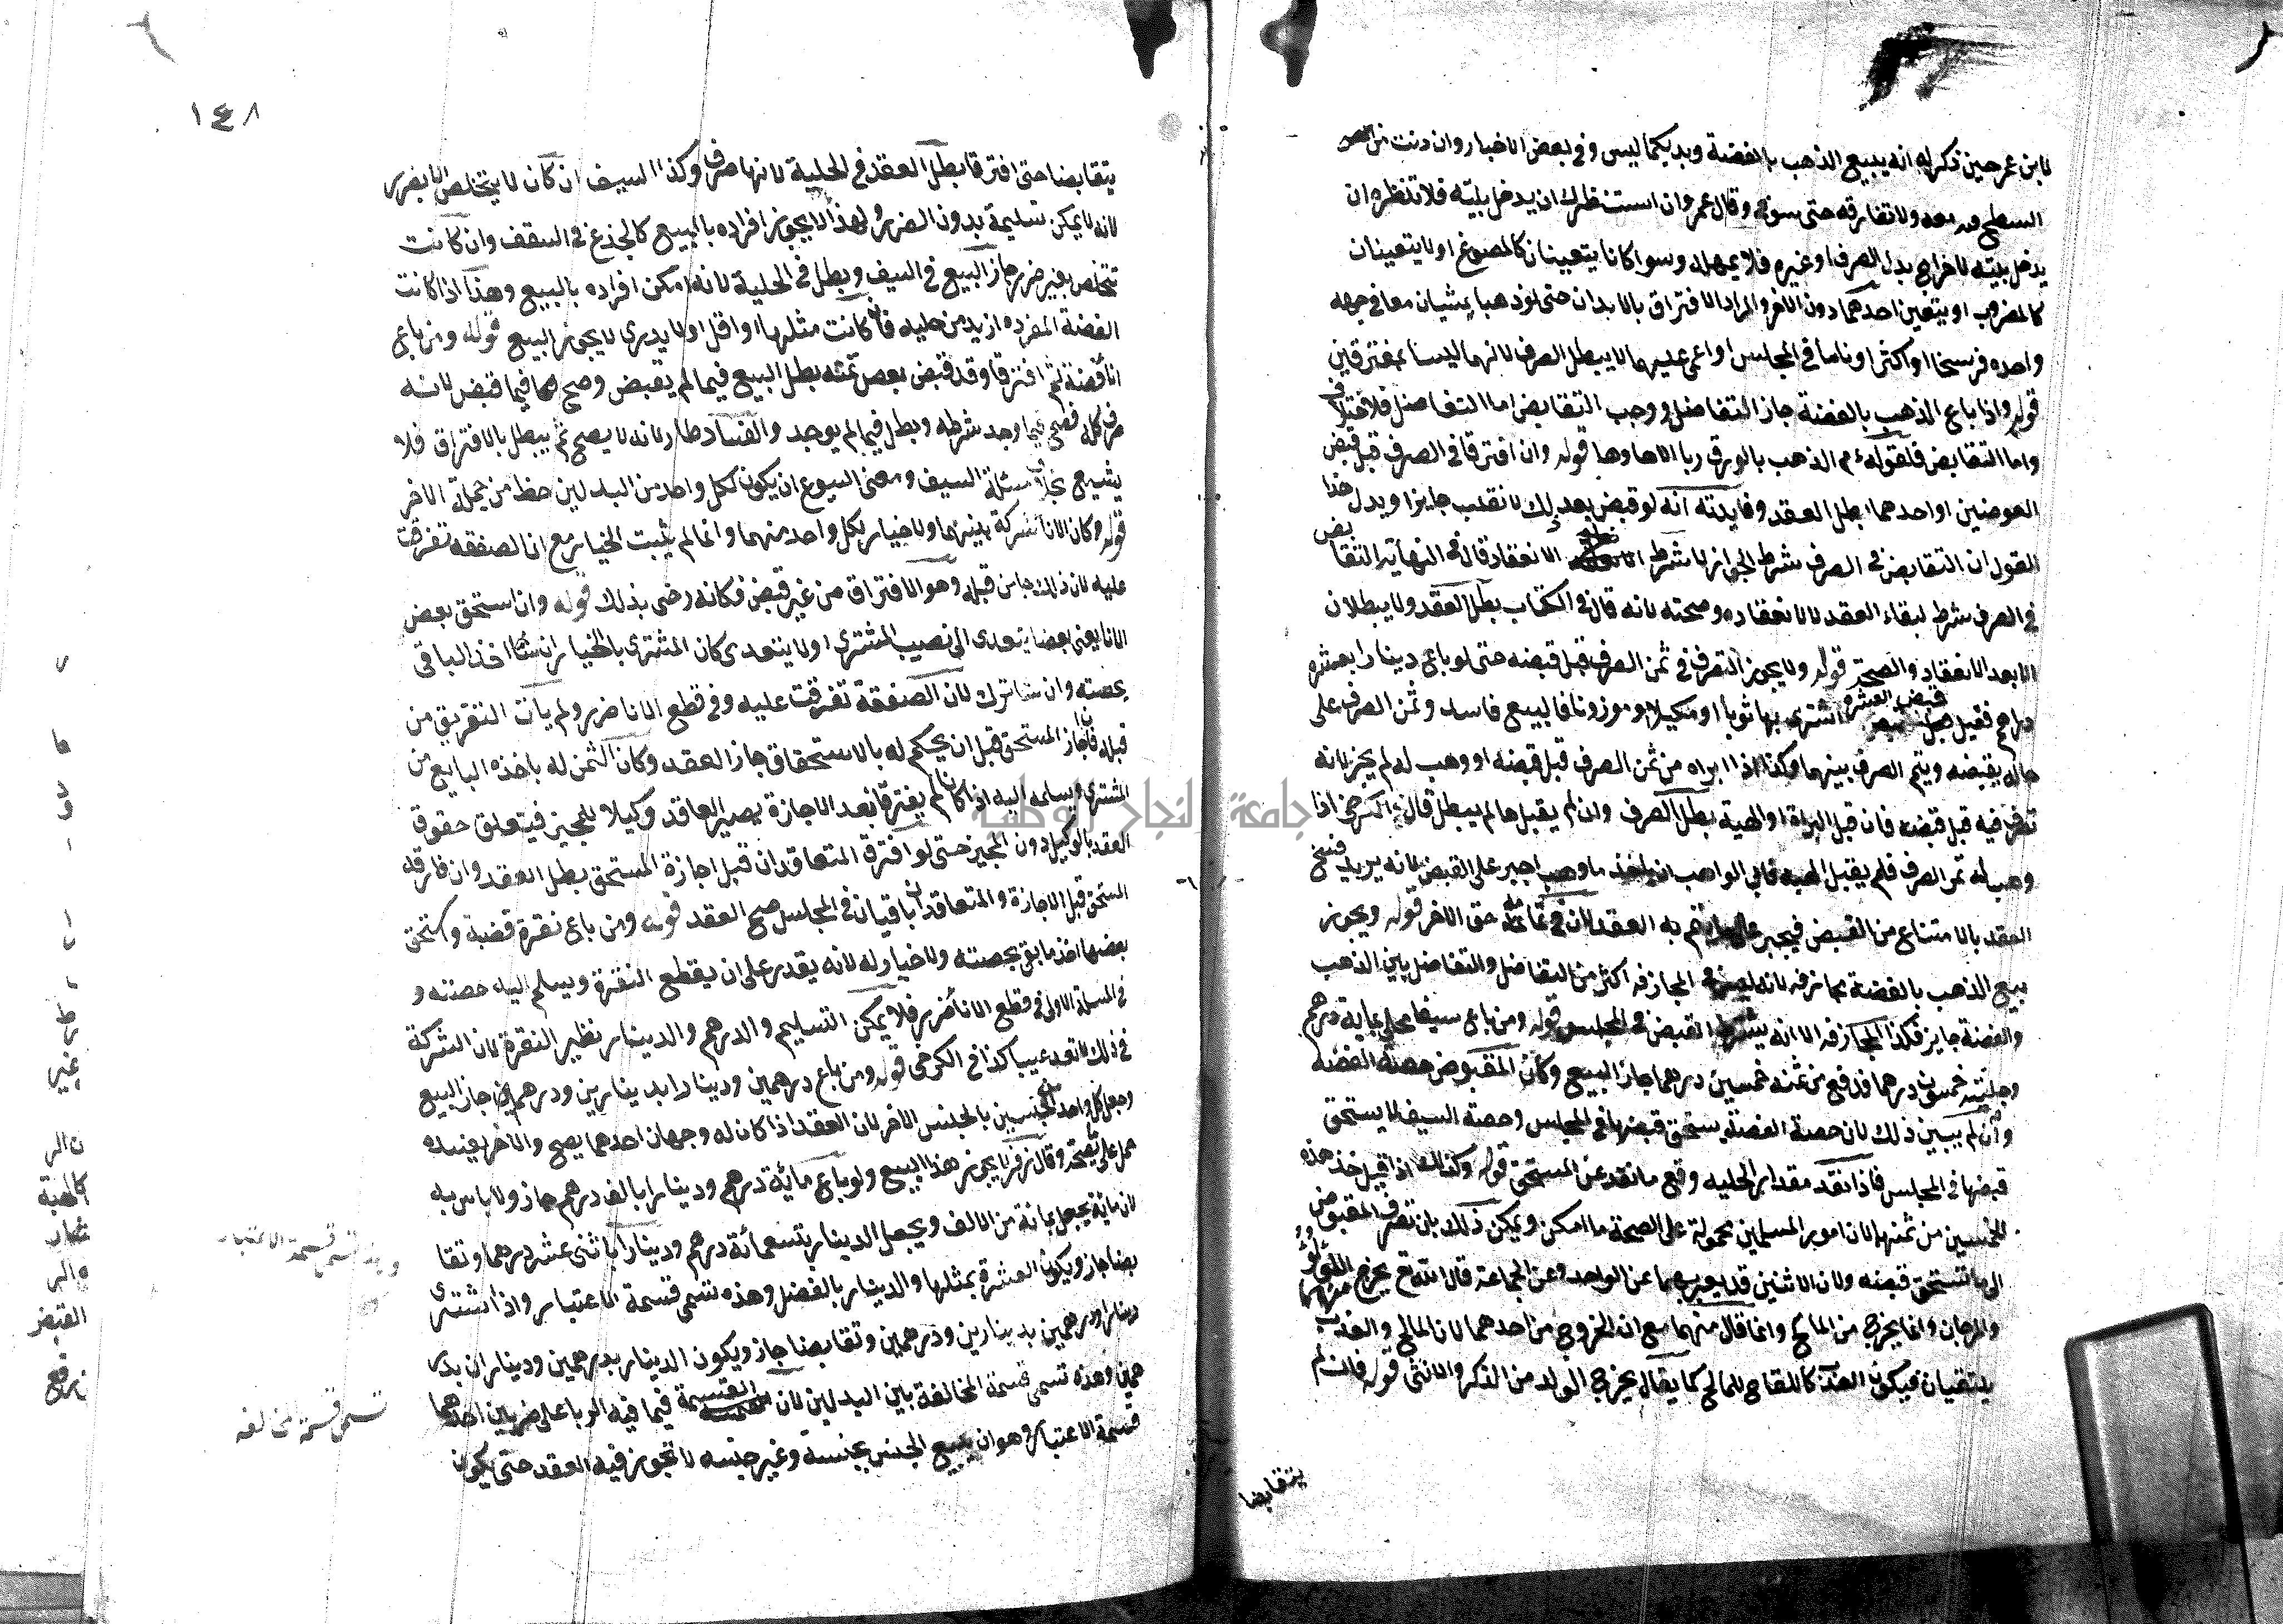 لابن عمر حين ذكر له انه يبيع الذهب بالفضة ويديكما ليس وفي بعض الاخبار وان دنت من القصر
السطح معه ولا تفارقه حتى يستوفي وقال عمر وان استنظرك ان يدخل بيته فلا تنظره ان
يدخل بيته لاخراج بدل الصرف او غيره فلا يمهله وسوا كانا يتعينان كالمصوغ او لا يتعينان
كالمضروب او يتعين احدهما دون الاخر والمراد الافتراق بالابدان حتى لو ذهبا يمشيان معا في جهه
واحده فرسخا او اكثر او ناما في المجلس او اغمي عليهما لا يبطل الصرف لانهما ليسا بمفترقين
قوله واذا باع الذهب بالفضة جاز التفاضل ووجب التقابض اما التفاضل فلاختلاف
واما التقابض فلقوله ءم الذهب بالورق ربا الا ها وها قوله وان افترقا في الصرف قبل قبض
العوضين او احدهما بطل العقد وفايدته انه لو قبض بعد ذلك لا ينقلب جايزا ويدل هذا
القول ان التقابض في الصرف شرط الجواز لا شرط الانعقاد قال في النهاية التقابض
في الصرف شرط لبقاء العقد لا لانعقاده وصحته لانه قال في الكتاب بطل العقد ولا يبطلان
الا بعد الانعقاد والصحة قوله ولا يجوز التصرف في ثمن الصرف قبل قبضه حتى لو باع دينارا بعشره
دراهم فقبل قبض العشره اشترى بها ثوبا او مكيلا او موزونا فالبيع فاسد وثمن الصرف على
حاله يقبضه ويتم الصرف بينهما وكذا اذا ابراه من ثمن الصرف قبل قبضه او وهب له لم يجز لانه
تصرف فيه قبل قبضه فان قبل البراة او الهبة بطل الصرف وان لم يقبلها لم يبطل قال الكرخي اذا
وهب له ثمن الصرف فلم يقبل الهبه فابى الواهب ان ياخذ ما وهب اجبر على القبض لانه يريد فسخ
العقد بالامتناع من القبض فيجبر على ما يتم به العقد لان في تمامه حق الاخر قوله ويجوز
بيع الذهب بالفضة مجازفه لانه ليس في المجازفه اكثر من التفاضل والتفاضل بين الذهب
والفضة جايز فكذا المجازفه الا انه يشترط القبض في المجلس قوله ومن باع سيفا محلى بماية درهم
وحليته خمسون درهما فدفع من ثمنه خمسين درهما جاز البيع وكان المقبوض حصة الفضه
وان لم يبين ذلك لان حصة الفضة يستحق قبضها في المجلس وحصة السيف لا يستحق
قبضها في المجلس فاذا نقد مقدار الحليه وقع ما نقد عن المستحق قوله وكذلك اذا قيل خذ هذه
الخمسين من ثمنها لان امور المسلمين محمولة على الصحة ما امكن ويمكن ذلك بان تصرف المقبوض
الى ما تستحق قبضه ولان الاثنين قد يعبر بهما عن الواحد وعن الجماعة قال الله تع يخرج منهما اللؤلؤ
والمرجان وانما يخرج من المالح وانما قال منهما مع ان الخروج من احدهما لان المالح والعذب
يلتقيان فيكون العذب كاللقاح للمالح كما يقال يخرج الولد من الذكر والانثى قوله فان لم
يتقابضا
١٤٨
يتقابضا حتى افترقا بطل العقد في الحلية لانها صرف وكذا السيف ان كان لا يتخلص الا بضرر
لانه لا يمكن تسليمة بدون الضرر ولهذا لا يجوز افراده بالبيع كالجذع في السقف وان كانت
تتخلص بغير ضرر جاز البيع في السيف وبطل في الحلية لانه امكن افراده بالبيع وهذا اذا كانت
الفضة المفرده ازيد من حليه فان كانت مثلها او اقل او لا يدرى لا يجوز البيع قوله ومن باع
انا فضة ثم افترقا وقد قبض بعض ثمنه بطل البيع فيما لم يقبض وصح فيما قبض لانه
صرف كله فصح فيما وجد شرطه وبطل فيما لم يوجد والفساد طار لانه لا يصح ثم يبطل بالافتراق فلا
يشيع بخلاف مسئلة السيف ومعنى الشيوع ان يكون لكل واحد من البدلين حظ من جملة الاخر
قوله وكان الانا شركة بينهما ولا خيار لكل واحد منهما وانما لم يثبت الخيار مع ان الصفقه تفرقت
عليه لان ذلك جا من قبله وهو الافتراق من غير قبض فكانه رضى بذلك قوله وان استحق بعض
الانا يعني بعضا يتعدى الى نصيب المشتري او لا يتعدى كان المشتري بالخيار ان شا اخذ الباقي
بحصته وان شا ترك لان الصفقة تفرقت عليه وفي قطع الانا ضرر ولم يات التفريق من
قبله فان اجاز المستحق قبل ان يحكم له بالاستحقاق جاز العقد وكان الثمن له ياخذه البايع من
المشتري ويسلمه اليه اذا كانا لم يفترقا بعد الاجازة يصير العاقد وكيلا للمجيز فيتعلق حقوق
العقد بالوكيل دون المجيز حتى لو افترق المتعاقدان قبل اجازة المستحق بطل العقد وان فارقه
المستحق قبل الاجازة والمتعاقدان باقيان في المجلس صح العقد قوله ومن باع نقرة فضة واستحق
بعضها اخذ ما بقي بحصته ولا خيار له لانه يقدر على ان يقطع النقرة ويسلم اليه حصته و
في المسالة الاولى في قطع الانا ضرر فلا يمكن التسليم والدرهم والدينار نظير النقرة لان الشركة
في ذلك لا تعد عيبا كذا في الكرخي قوله ومن باع درهمين ودينارا بدينارين ودرهم جاز البيع
وجعل كل واحد من الجنسين بالجنس الاخر لان العقد اذا كان له وجهان احدهما يصح والاخر يفسده
حمل على الصحة وقال زفر لا يجوز هذا البيع ولو باع مائة درهم ودينارا بالف درهم جاز ولا باس به
لان مائة يجعل بمائة من الالف ويجعل الدينار بتسعمائة درهم ودينارا باثنى عشر درهما وتقا
بضا جاز ويكون العشرة بمثلها والدينار بالفضل وهذه تسمى قسمة الاعتبار واذا اشترى
دينارا ودرهمين بدينارين ودرهمين وتقابضا جاز ويكون الدينار بدرهمين وديناران بدر
همين وهذه تسمى قسمة المخالفة بين البدلين لان القسمة فيما فيه الربا على ضربين احدهما
قسمة الاعتبار وهو ان يبيع الجنس بجنسه وغير جنسه لا تجوز فيه العقد حتى يكون
قسمة الاعتبار
تسمى قسمة المخالفه
غير
كالهبة
القبض
جامعة النجاح الوطنية